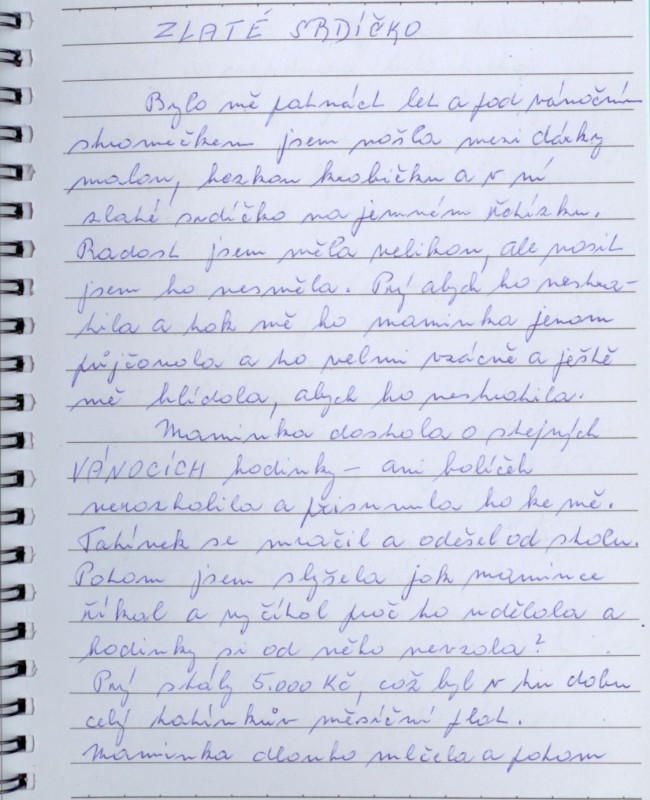 ZLATÉ SRDÍČKO
Bylo mě patnáct let a pod vánočním
stromečkem jsem našla mezi dárky
malou, hezkou krabičku a v ní
zlaté srdíčko na jemném řetízku.
Radost jsem měla velikou, ale nosit
jsem ho nesměla. Prý abych ho neztra-
tila a tak mě ho maminka jenom
půjčovala a to velmi vzácně a ještě
mě hlídala, abych ho neztratila.
Maminka dostala o stejných
VÁNOCÍCH hodinky – ani balíček
nerozbalila a přisunula ho ke mě.
Tatínek se mračil a odešel od stolu.
Potom jsem slyšela jak mamince
říkal a vyčítal proč to udělala a
hodinky si od něho nevzala?
Prý stály 5.000 Kč, což byl v tu dobu
celý tatínkův měsíční plat.
Maminka dlouho mlčela a potom